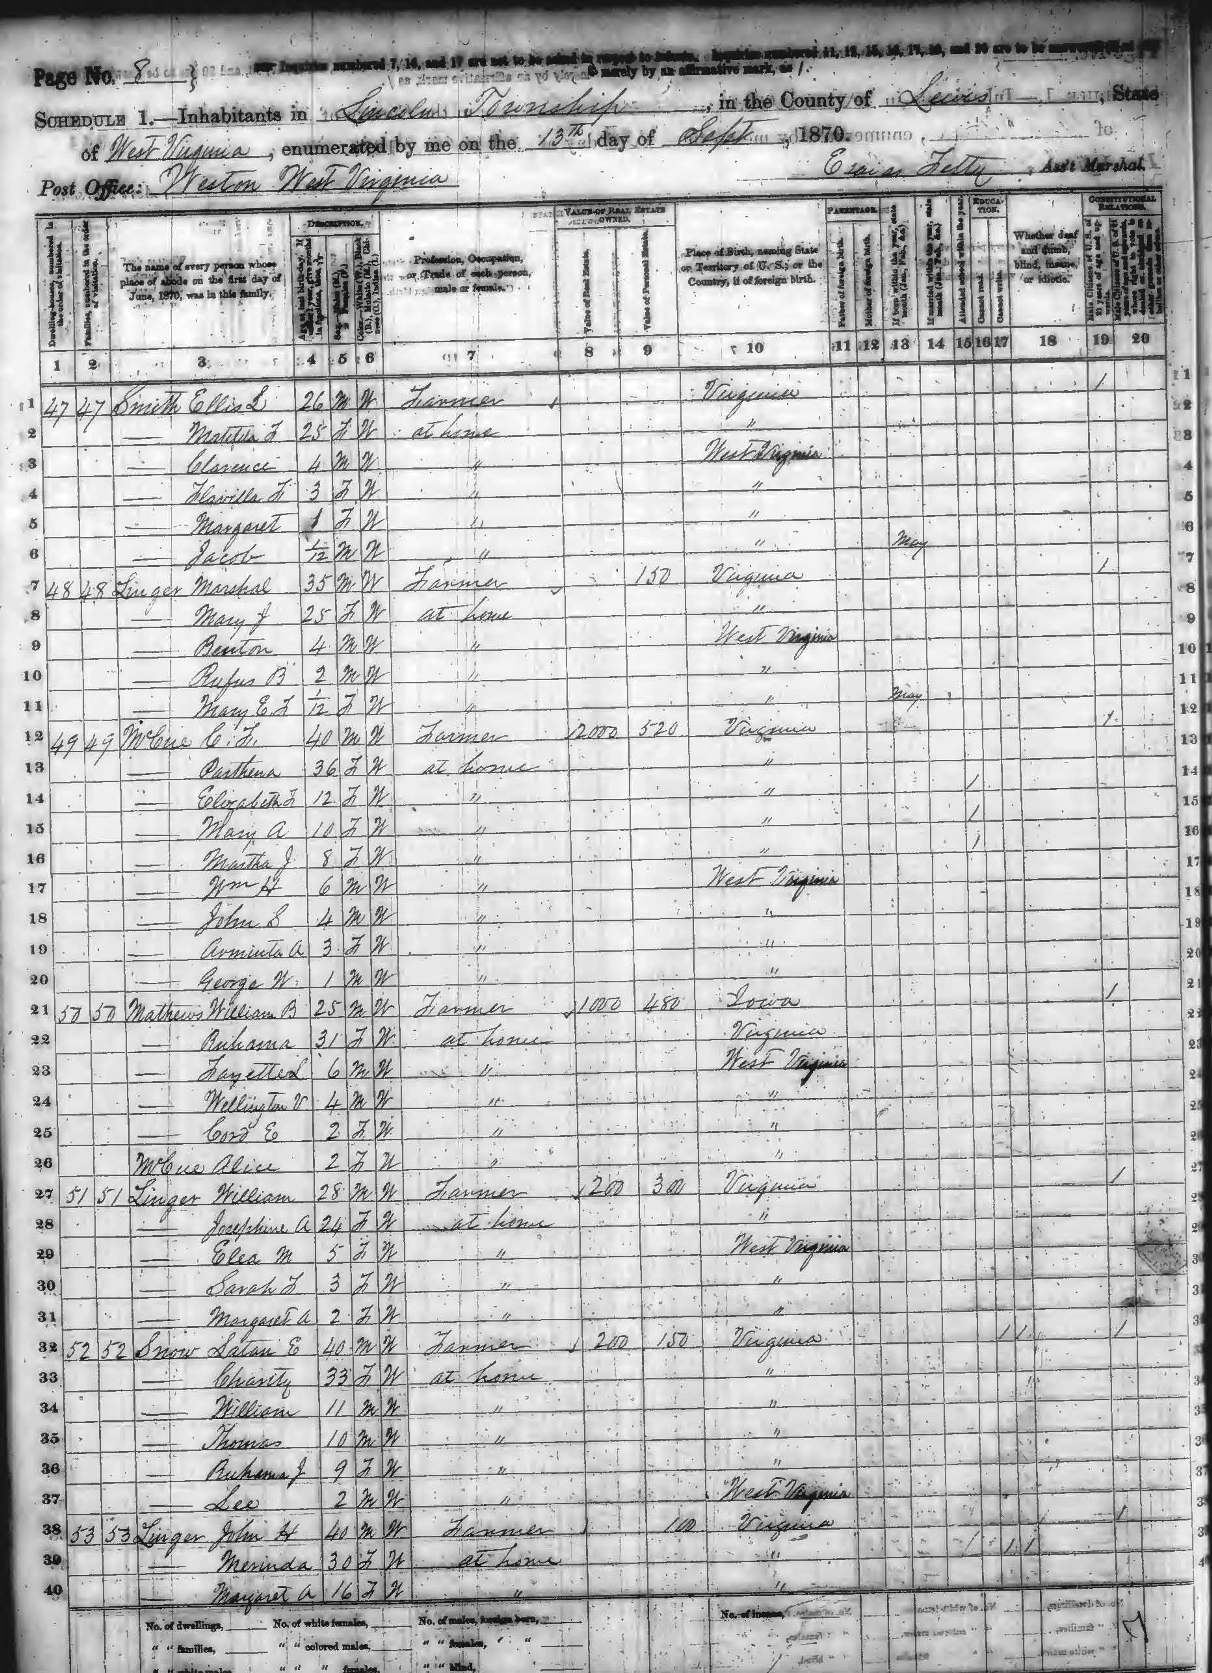 Page No. 8
Inquiries numbered 7, 16, and 17 are not to be asked in respect to infants. Inquiries numbered 11, 12, 15, 16, 17, 19, and 20 are to be answered
merely by an affirmative mark, as /.
SCHEDULE 1.—Inhabitants in Lincoln Township, in the County of Lewis, State
of West Virginia, enumerated by me on the 13th day of Sept, 1870.
Post Office: Weston West Virginia Fetty, Ass't Marshal.
DESCRIPTION. VALUE OF REAL ESTATE OWNED. PARENTAGE. EDUCATION. CONSTITUTIONAL RELATIONS.
Dwelling-houses, numbered in the order of visitation. Families, numbered in the order of visitation. The name of every person whose place of abode on the first day of June, 1870, was in this family. Profession, Occupation, or Trade of each person, male or female. Value of Real Estate. Value of Personal Estate. Place of Birth, naming State or Territory of U. S.; or the Country, if of foreign birth. Father of foreign birth. Mother of foreign birth. Attended school within the year. Cannot read. Cannot write. Whether deaf and dumb, blind, insane, or idiotic.
1 2 3 4 5 6 7 8 9 10 11 12 13 14 15 16 17 18 19 20
1 47 47 Smith Ellis L 26 M W Farmer Virginia / 1
2 — Matilda F 25 F W at home " 2
3 — Clarence 4 M W " West Virginia 3
4 — Flavilla F 3 F W " " 4
5 — Margaret 1 F W " " 5
6 — Jacob 1/12 M W " " May 6
7 48 48 Linger Marshal 35 M W Farmer 150 Virginia / 7
8 — Mary J 25 F W at home " 8
9 — Benton 4 M W " West Virginia 9
10 — Rufus B 2 M W " " 10
11 — Mary E F 1/12 F W " " May 11
12 49 49 McCue C. F. 40 M W Farmer 2000 520 Virginia / 12
13 — Parthena 36 F W at home " 13
14 — Elizabeth F 12 F W " " / 14
15 — Mary A 10 F W " " / 15
16 — Martha J 8 F W " " / 16
17 — Wm H 6 M W " West Virginia 17
18 — John S 4 M W " " 18
19 — Arminta A 3 F W " " 19
20 — George W. 1 M W " " 20
21 50 50 Mathews William B 25 M W Farmer 1000 480 Iowa / 21
22 — Ruhama 31 F W at home Virginia
23 — Fayette L 6 M W " West Virginia
24 — Wellington V 4 M W " "
25 — Cora E 2 F W " "
26 McCue Alice 2 F W " "
27 51 51 Linger William 28 M W Farmer 200 300 Virginia /
28 — Josephine A 24 F W at home "
29 — Elea M 5 F W " West Virginia
30 — Sarah F 3 F W " "
31 — Margaret A 2 F W " "
32 52 52 Snow Satan E 40 M W Farmer 200 150 Virginia / / /
33 — Charity 33 F W at home "
34 — William 11 M W " "
35 — Thomas 10 M W " "
36 — Ruhama J 9 F W " "
37 — Lee 2 M W " West Virginia
38 53 53 Linger John H 40 M W Farmer 100 Virginia /
39 — Merinda 30 F W at home " / /
40 — Margaret A 16 F W " "
No. of dwellings, No. of white females, No. of males, foreign born, No. of insane,
" " families, " " colored males, " " females, " "
" " white males " " " females, " " blind,